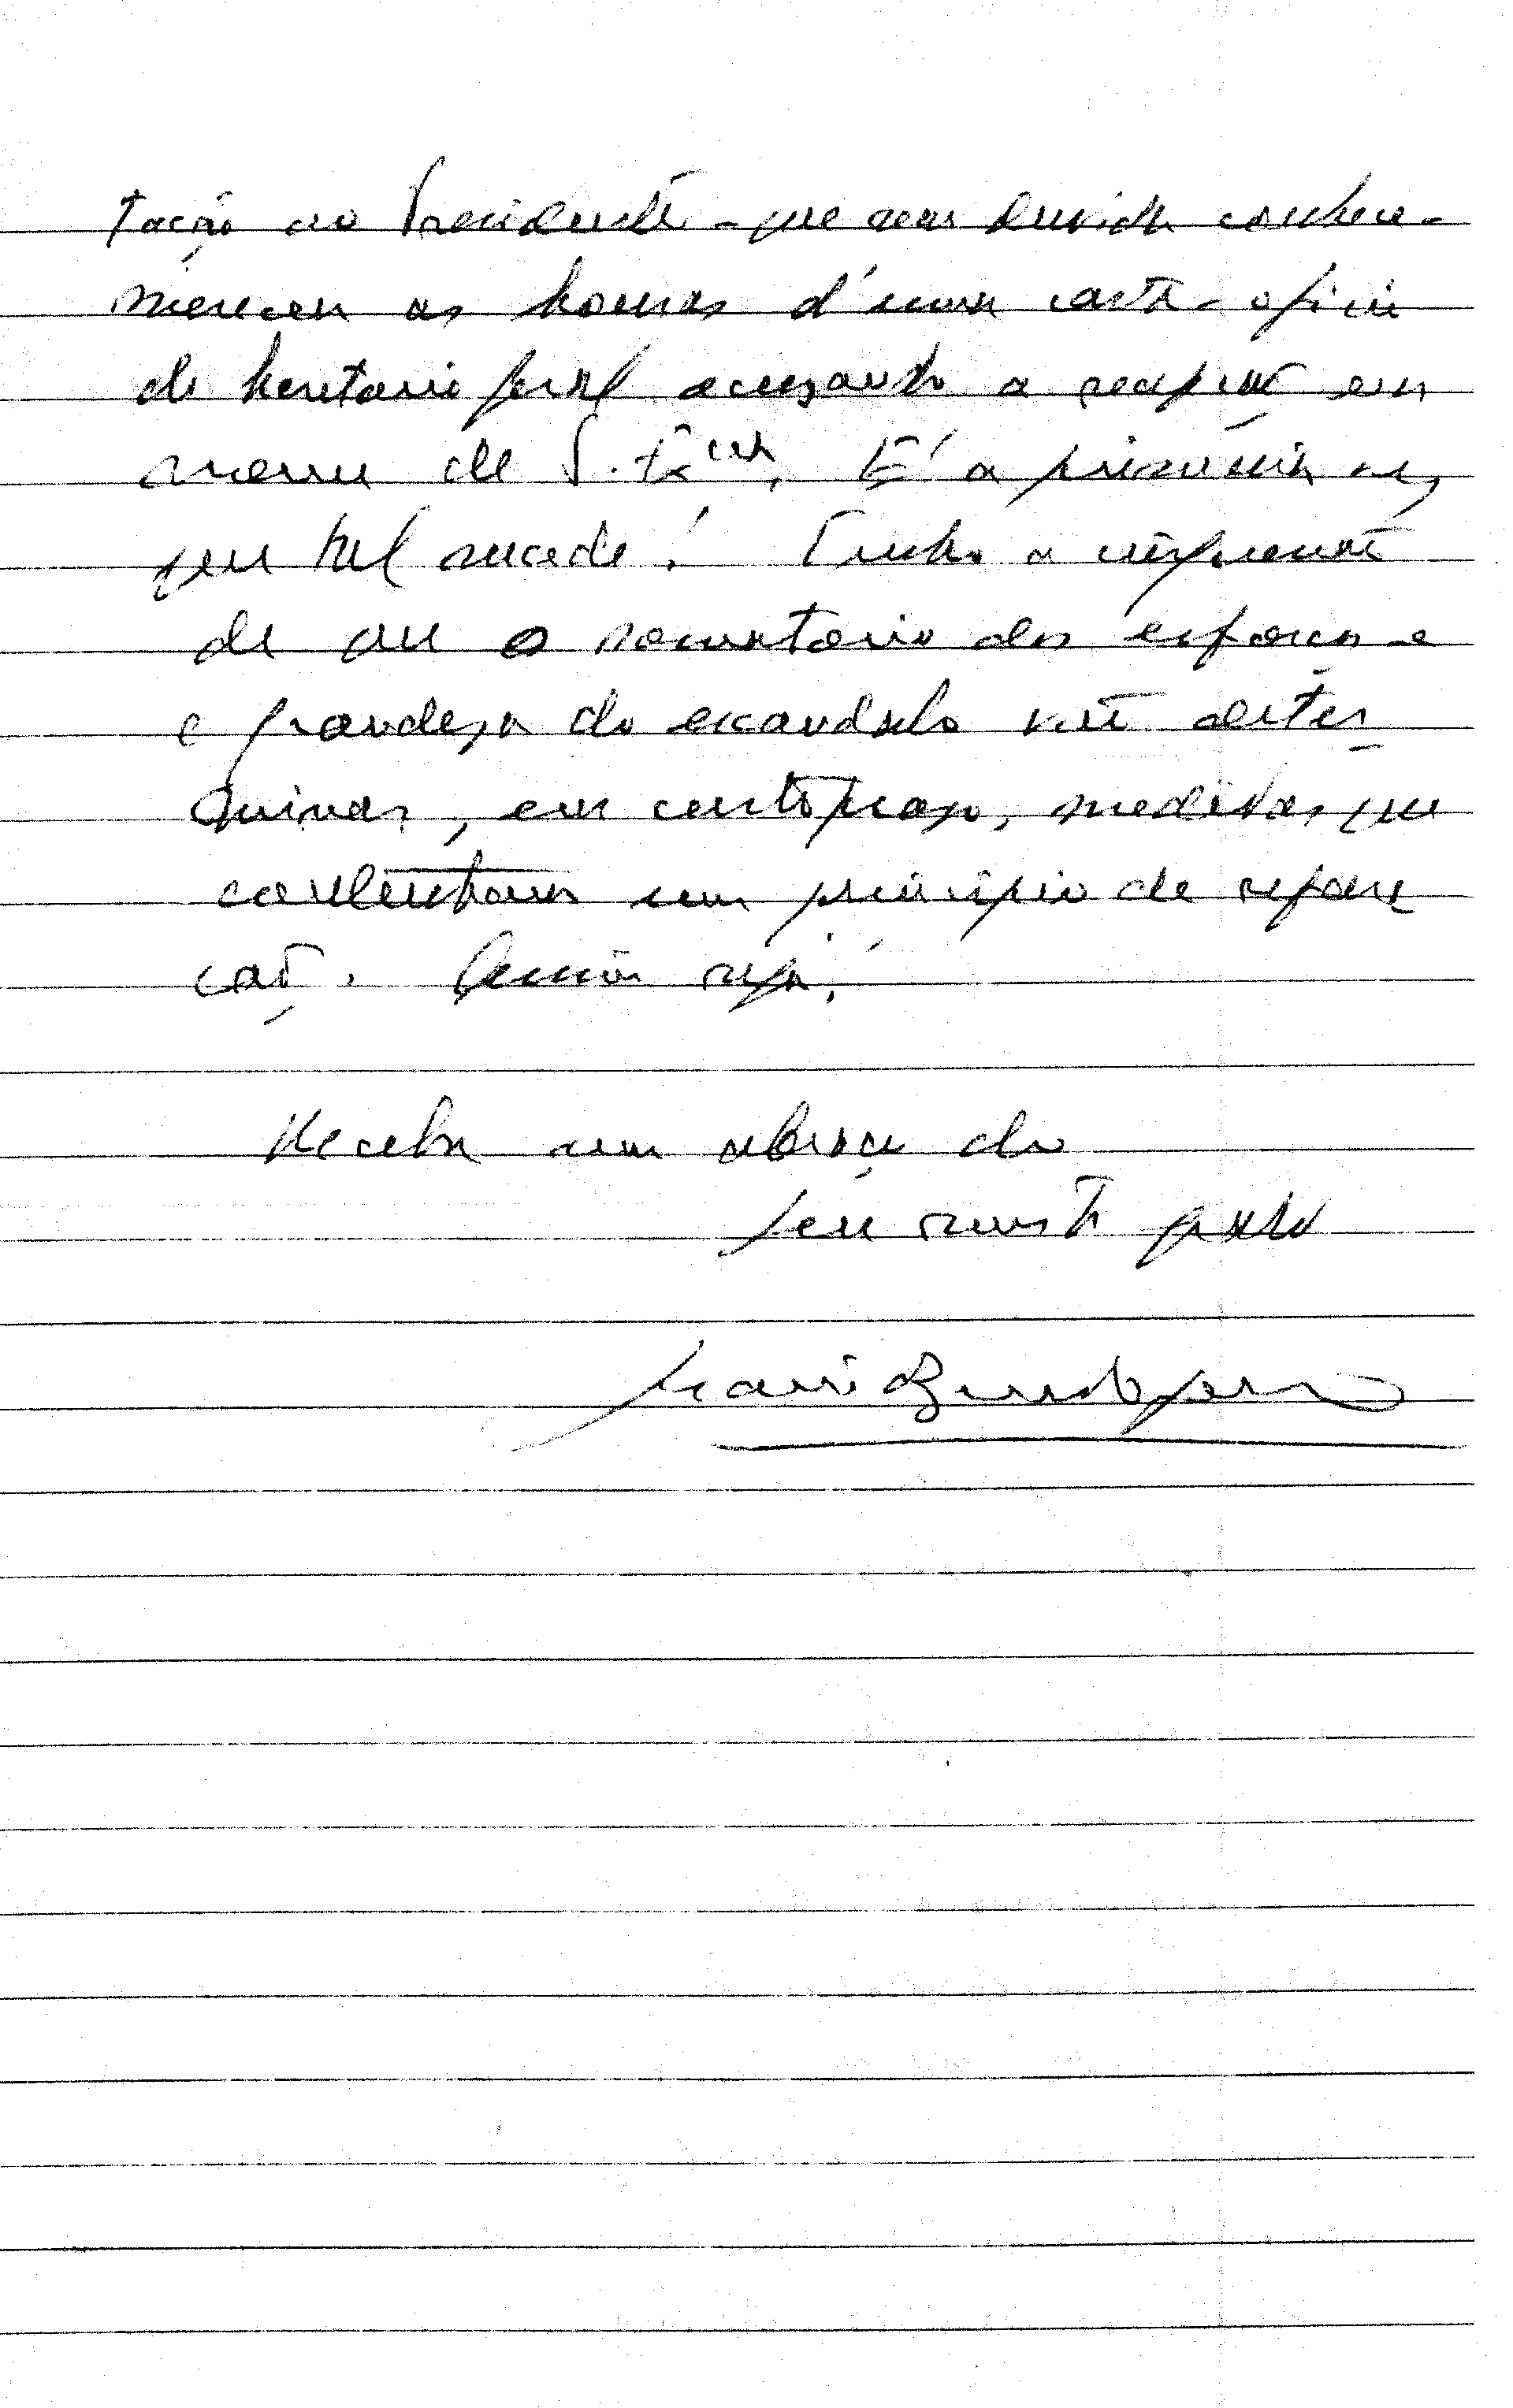 tação ao Presidente - que sem duvida conhece -
mereceu as honras d'uma carta-oficio
do Secretario geral acusando a recepção em
nome de S. Exciª. É a primeira vez
que tal sucede! Tenho a impressão
de que o somatorio dos esforços e
e grandeza do escandalo vão deter
minar, em curto prazo, medidas que
constituam um principio de repara
ção. Assim seja!
Receba um abraço do
seu muito grato